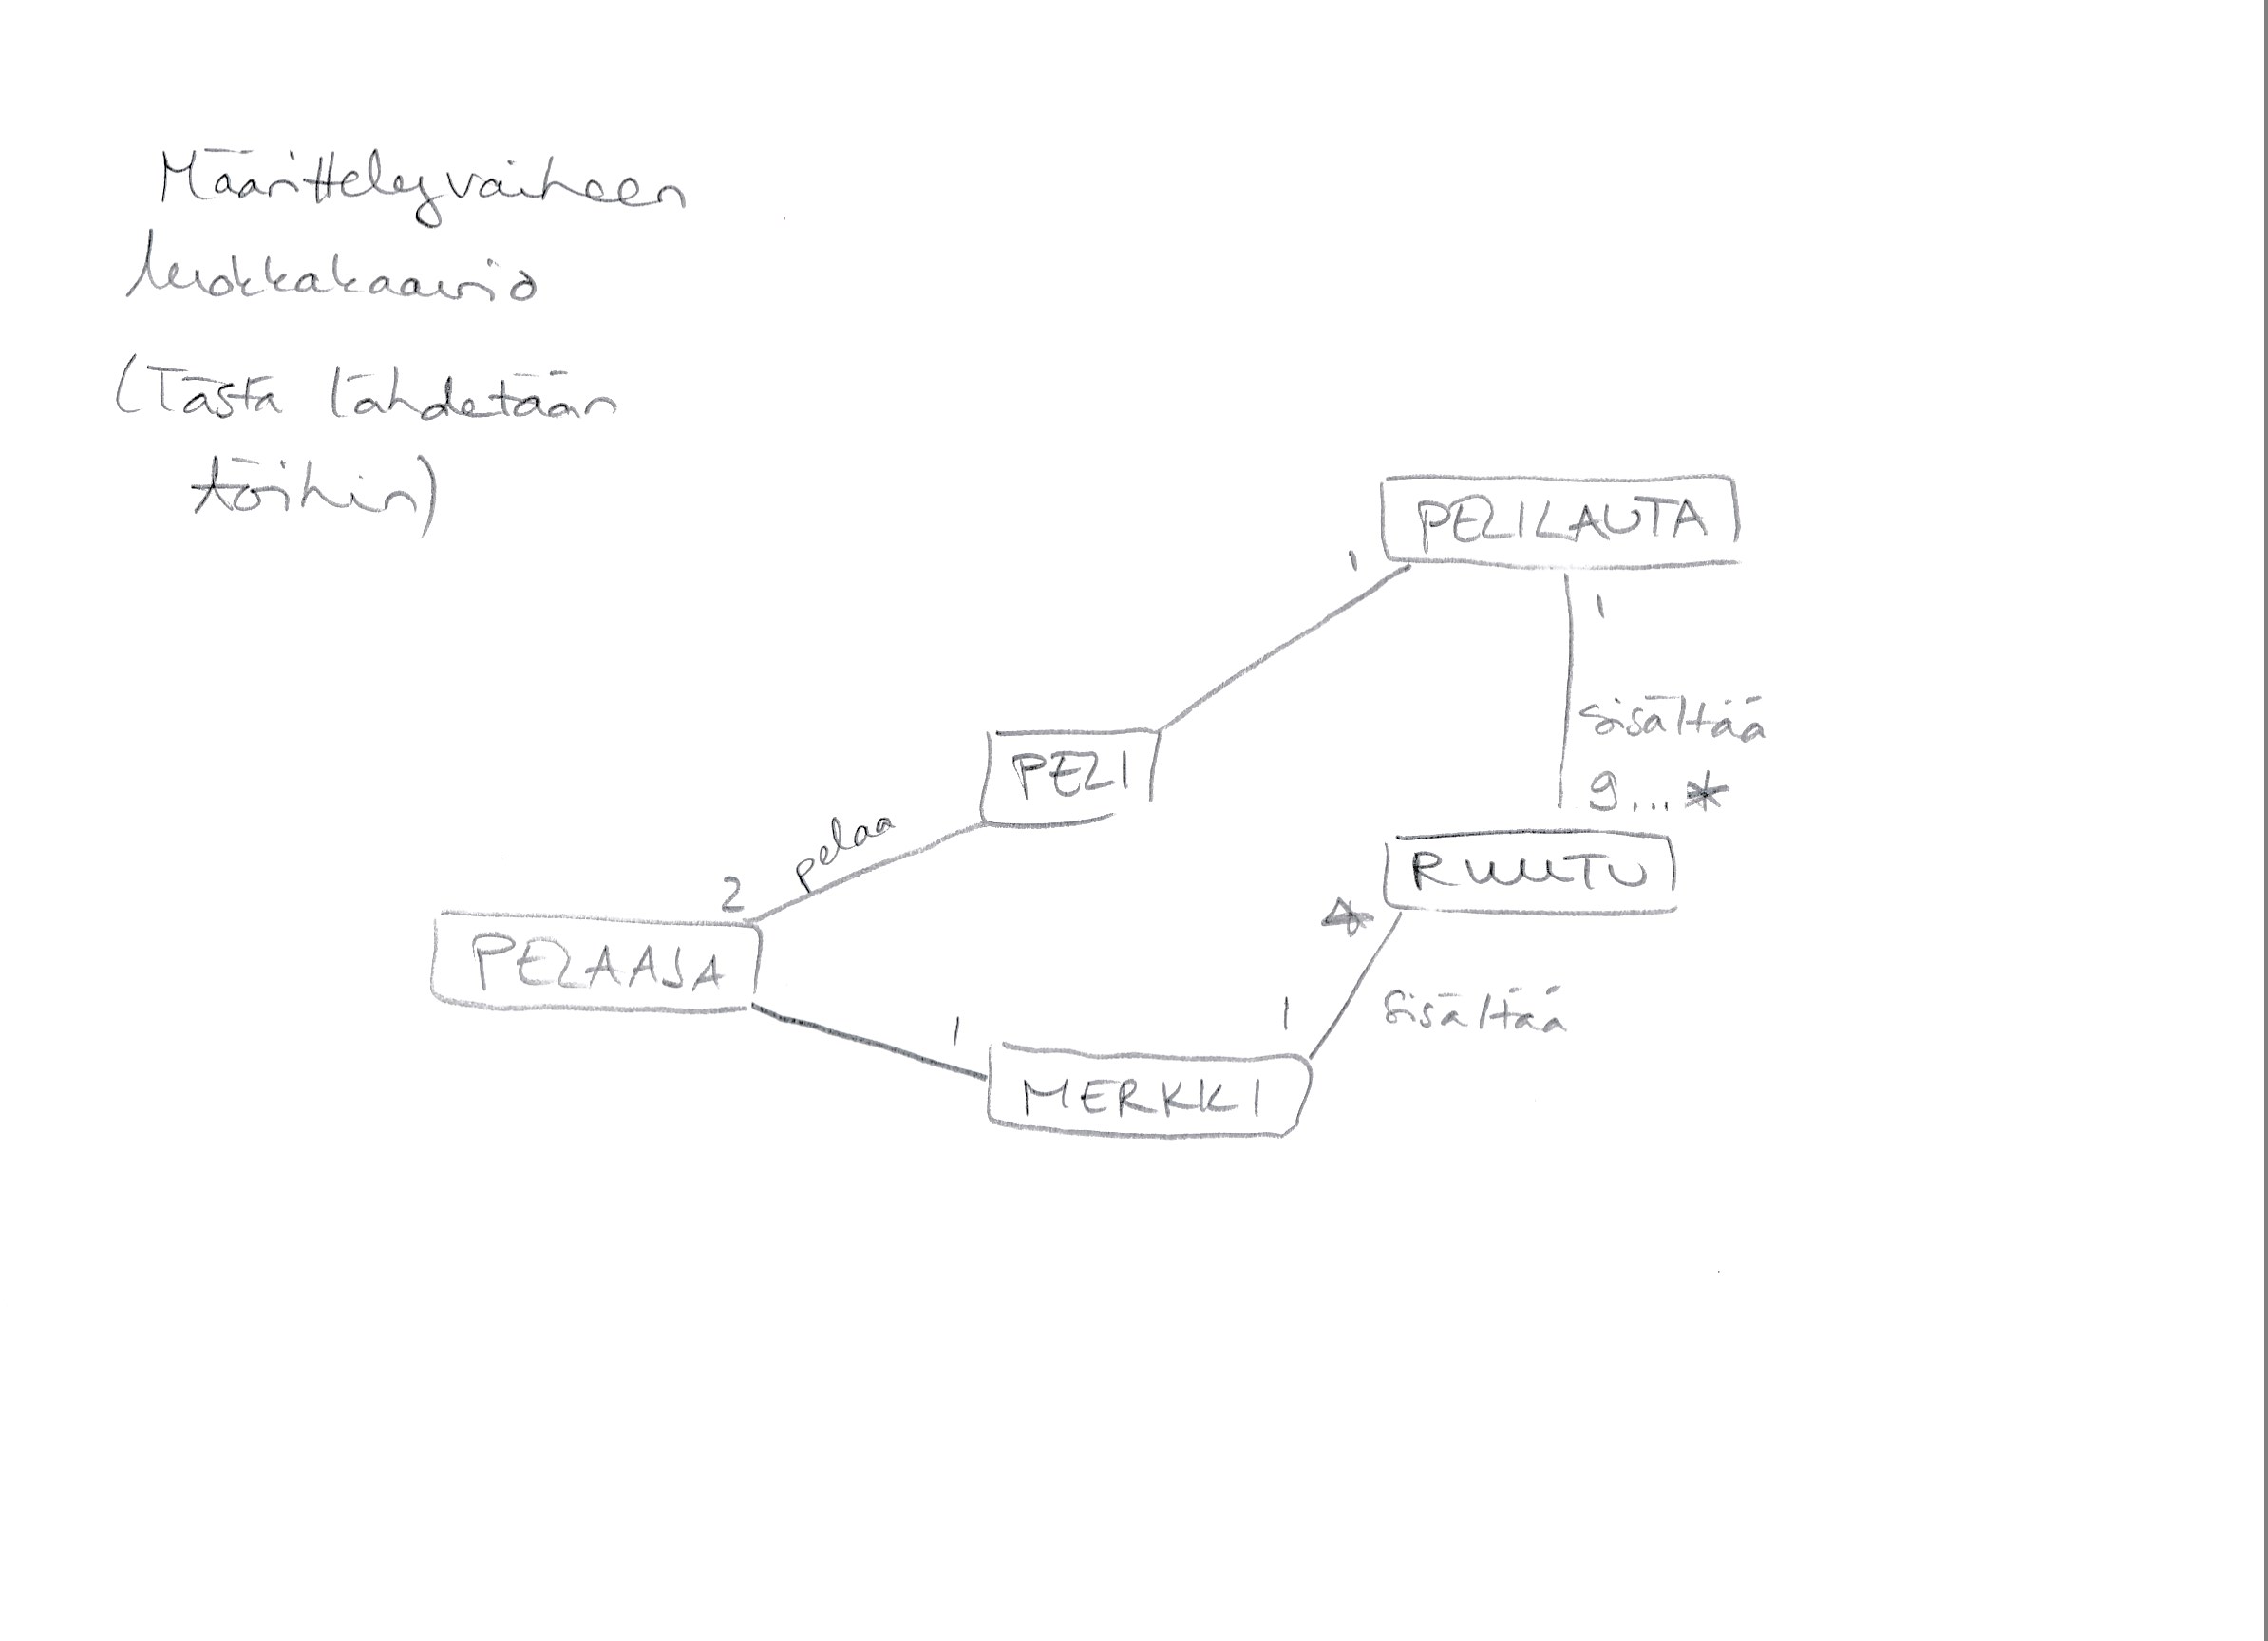 Määrittelyvaiheen
luokkakaavio
(Tästä lähdetään
töihin)
PELILAUTA
1
1
sisältää
9...*
PELI
pelaa
2
RUUTU
*
PELAAJA
sisältää
1
1
MERKKI